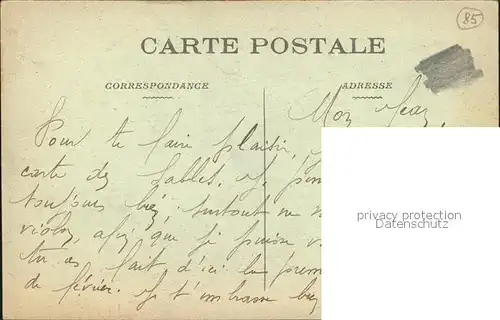 85
CARTE POSTALE
CORRESPONDANCE
ADRESSE
Mon Jean,
Pour te faire plaisir,
carte des Sables. J
toujours bien, surtout ne
violon, afin que je puisse v
tu as fait d'ici le prem
de février. Je t'embrasse bien
privacy protection
Datenschutz